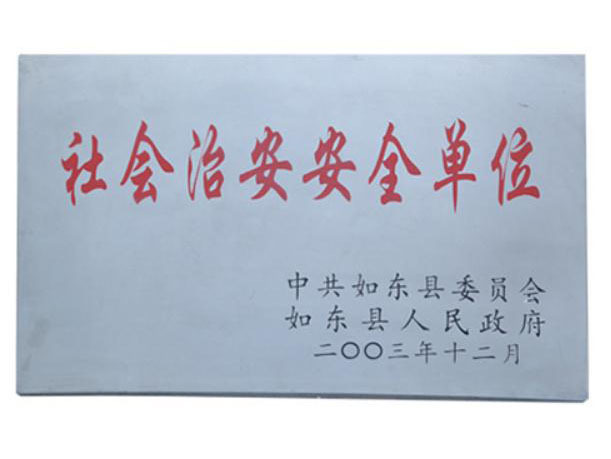 社会治安安全单位
中共如东县委员会
如东县人民政府
二〇〇三年十二月